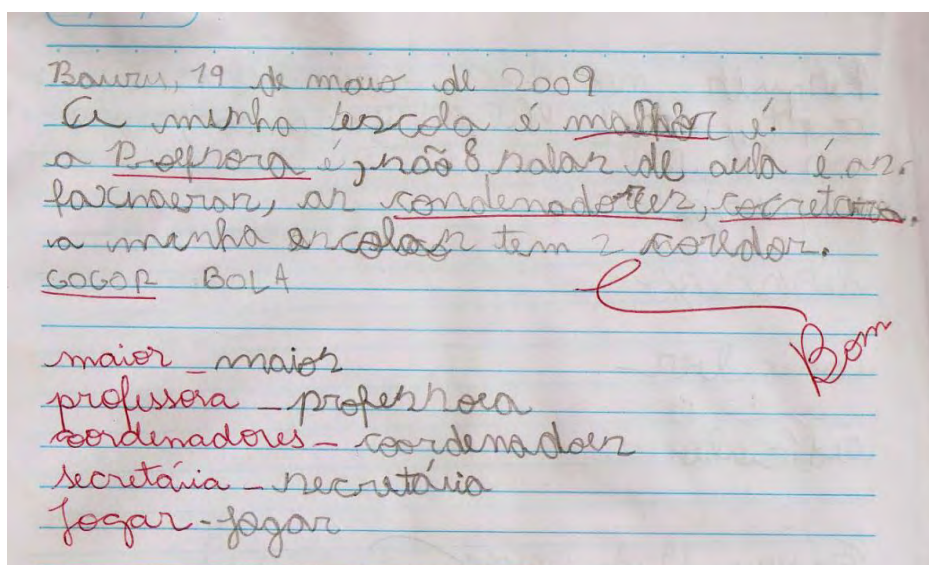 Bauru, 19 de maio de 2009
A minha escola é malhor é.
a Proefsora é, não 8 salas de aula é as.
faxnaeras, as condenadores, socretaria.
a minha escolas tem 2 coredor.
GOGOR BOLA
Bom
maior - maior
professora - professora
coordenadores - coordenadoes
secretária - secretária
Jogar - Jogar